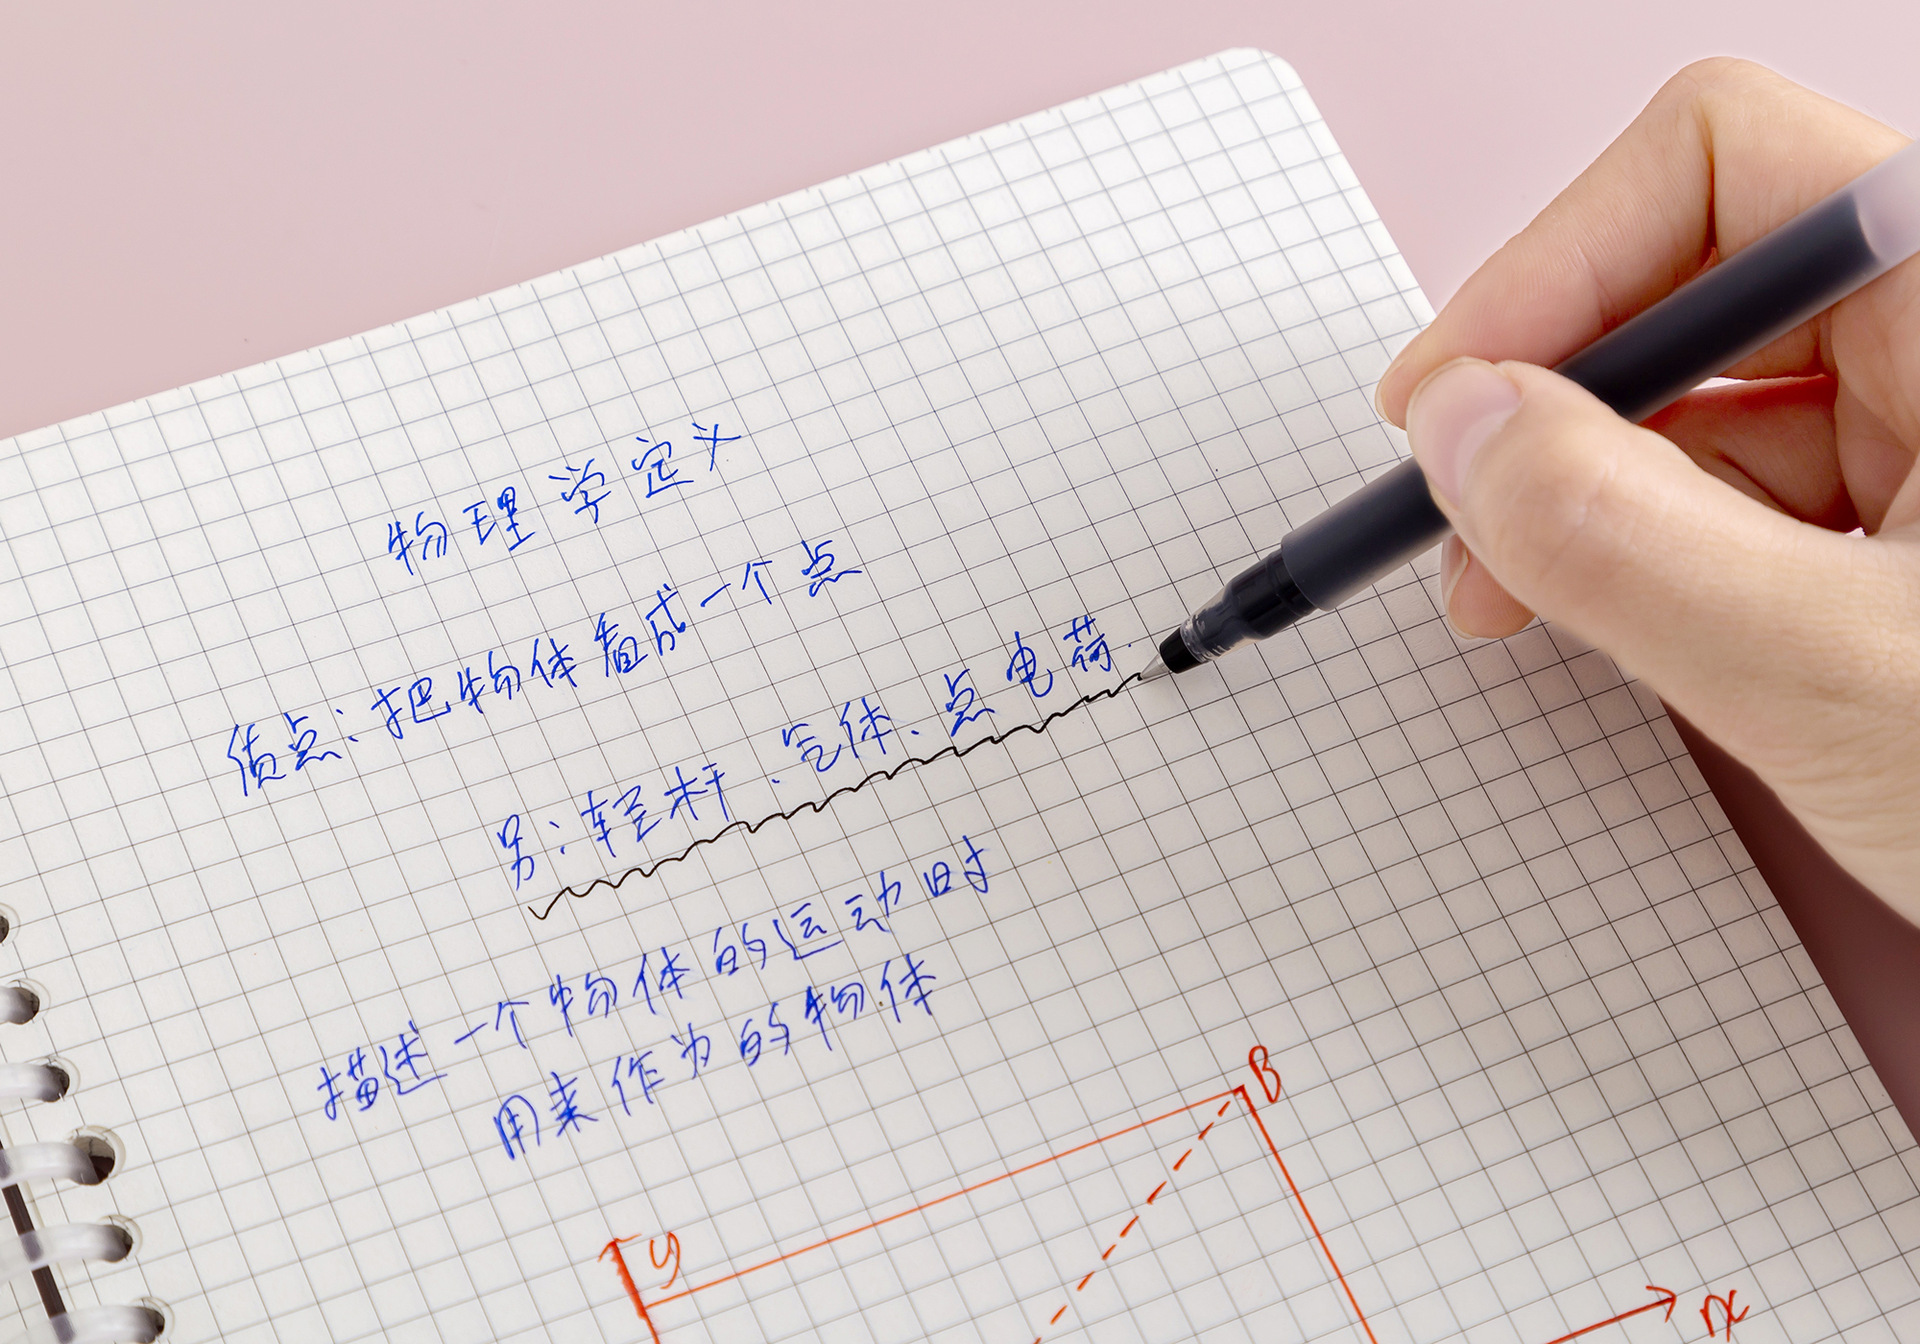 物理学定义
质点：把物体看成一个点
另：轻杆、气体、点电荷.
描述一个物体的运动时
用来作为的物体
B
y
x